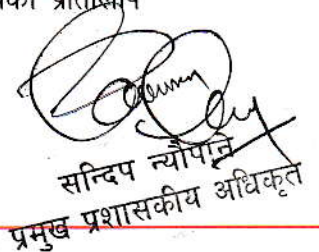 प्रतिलिपि
सन्दिप न्यौपाने
प्रमुख प्रशासकीय अधिकृत